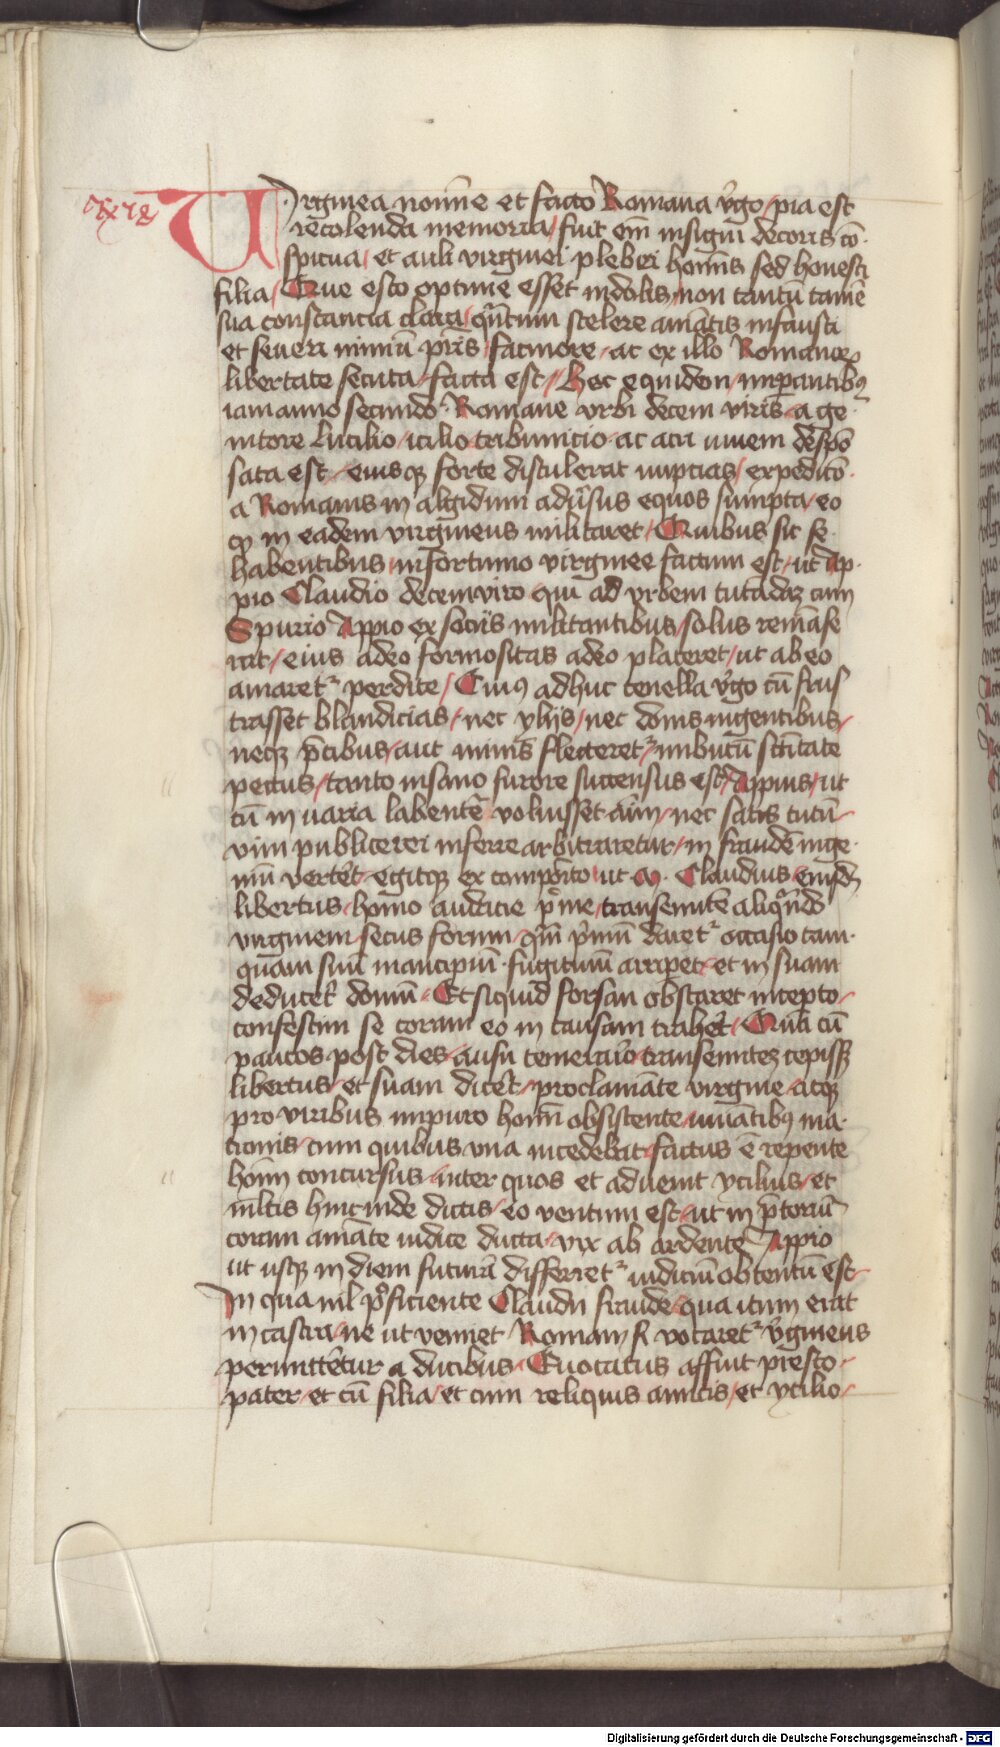 Virginea nomine et facto Romana v̓go / pia est
recolenda memoria / fuit em̄ insigni decoris cō-
spicua / et auli virginei plebei hom̄is sed honesti
filia / Que esto optime esset indolis / non tantū tamē
sua constancia clara / qn̄tum scelere amātis infausti
et seueri nimiū pr̄is facinore / ac ex illo Romanoꝝ
libertate secuta / facta est / Hec equidem / imꝑantibꝰ
iam anno secundo Romane vrbi decem viris / a ge-
nitore Lucilio / icilio tribunicio ac acri iuueni despō
sata est / eiusqꝫ forte distulerat nuptias / expeditō
a Romanis in algidum adūsus equos sumpta / eo
ꝙ in eadem virgineus militaret / Quibus sic se
habentibus / infortunio virginee factum est / ut Ap-
pio Claudio decemviro qui ad vrbem tutādaꝫ cum
Spurio Appio ex sociis militantibus / solus remāse
rat / eius adeo formositas adeo placeret / ut ab eo
amaretᷣ perdite / Cuiꝰ adhuc tenella v̓go cū frus
trasset blandicias / nec ylijs / nec donis ingentibus /
neqꝫ p̄cibus / aut minis flecteretᷣ / imbutū sc̄titate
pectus / tanto insano furore succensus est Appius / ut
cū in uaria labentē voluisset aīm / nec satis tutū /
vim publice rei inferre arbitraretur / in fraudē inge-
niū vertēt / egitqꝫ ex compōito ut M. Claudius / eiusdē
libertus / homo audacie p̄me / transeuntē aliqn̄do
virginem secus forum / qm̄ p̄mū daretᷣ occasio tam-
quam suū mancipiū fugitiuū arriperet / et in suam
deducet̓ domū / Et siquid forsan obstaret incepto /
confestim se coram eo in causam trahēt / Quā cū
paucos post dies / ausu temerario transeuntez cepissꝫ
libertus / et suam dicēt / proclamāte virgine / atqꝫ
pro viribus impuro hom̄i obsistente / iuuātibꝰ ma-
tronis / cum quibus vna incedebat / factus ē repente
hoīm concursus / inter quos et aduenit ycilius / et
ml̄tis hincinde dictis / eo ventum est / ut in p̄toriū
coram amāte iudice ducta / vix ab ardente Appio
ut usqꝫ in diem futurā differretᷣ iudiciū obtentū est /
In qua nil p̄ficiente Claudii fraude / qua itum erat
in castra / ne ut veniret Romam si vocaretᷣ v̓gineus
permittētur a ducibus / Euocatus affuit presto /
pater / et cū filia / et cum reliquis amicis / et ycilio /
Digitalisierung gefördert durch die Deutsche Forschungsgemeinschaft - DFG